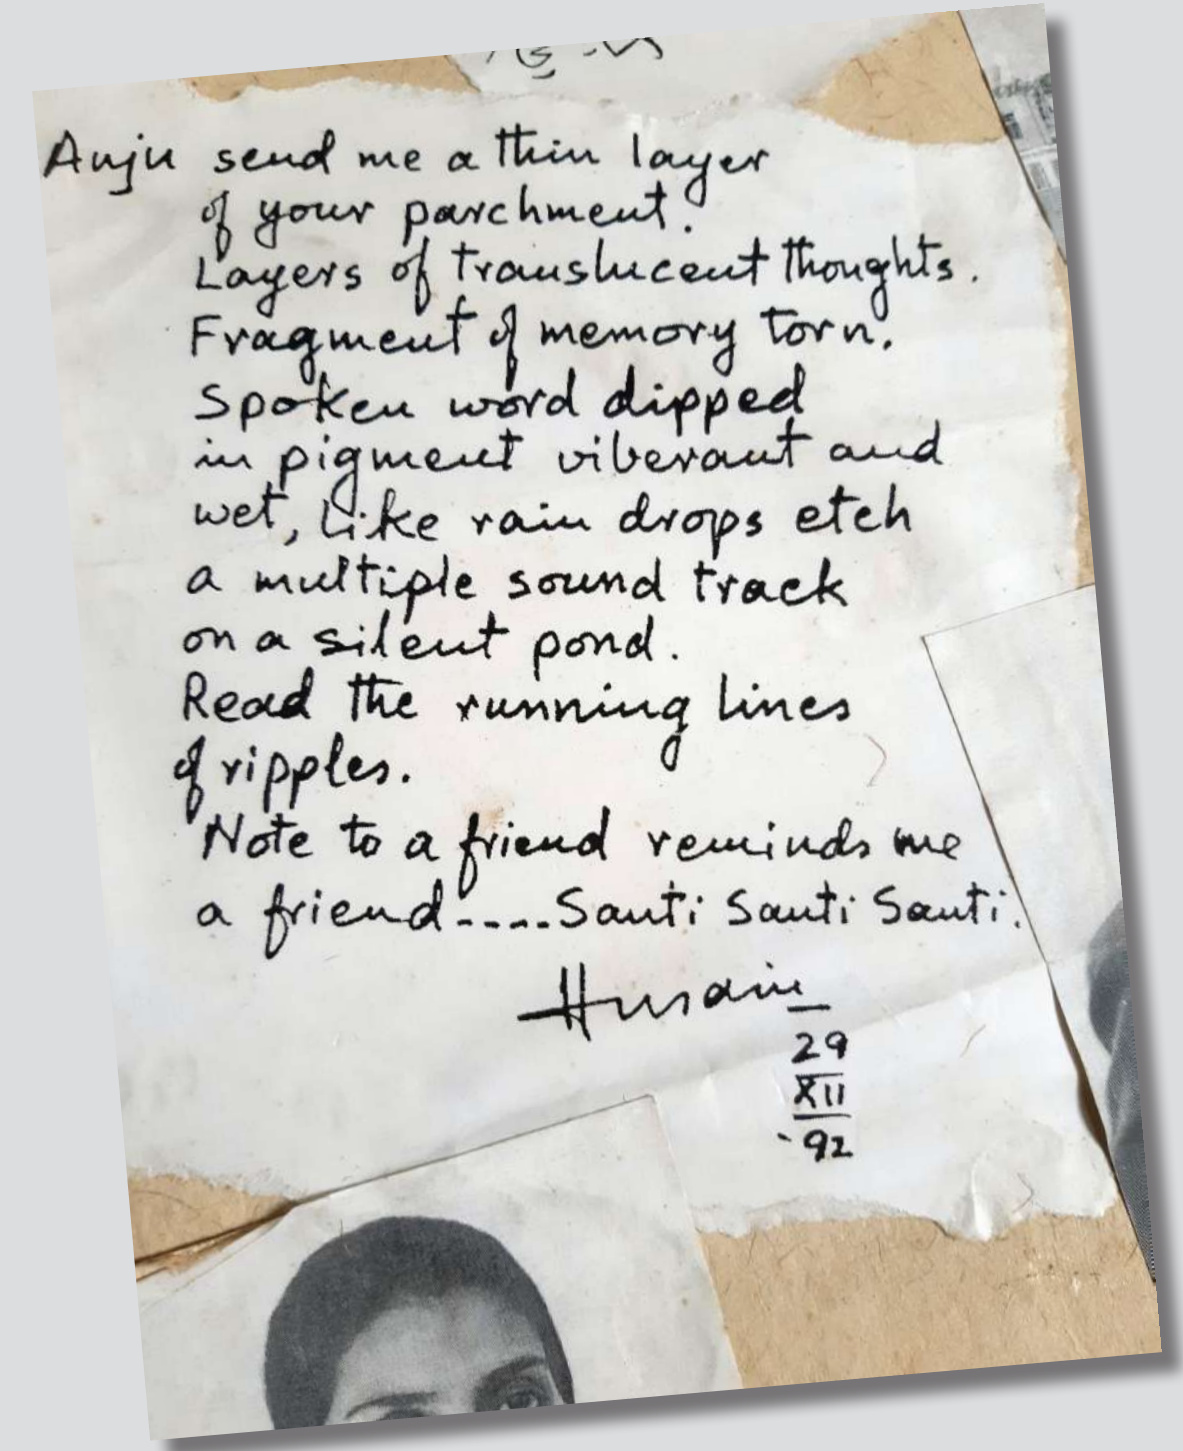 Anju send me a thin layer
of your parchment.
Layers of translucent thoughts.
Fragment of memory torn.
Spoken word dipped
in pigment viberant and
wet, like rain drops etch
a multiple sound track
on a silent pond.
Read the running lines
of ripples.
Note to a friend reminds me
a friend----.Santi Santi Santi.
Husain
29
XII
'92